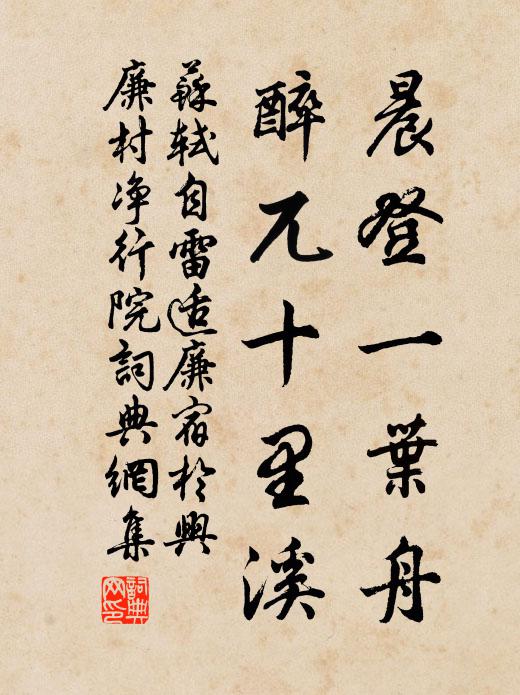 晨登一葉舟
醉兀十里溪
蘇軾自雷适廉宿於興
廉村净行院詞典網集
詞典網印